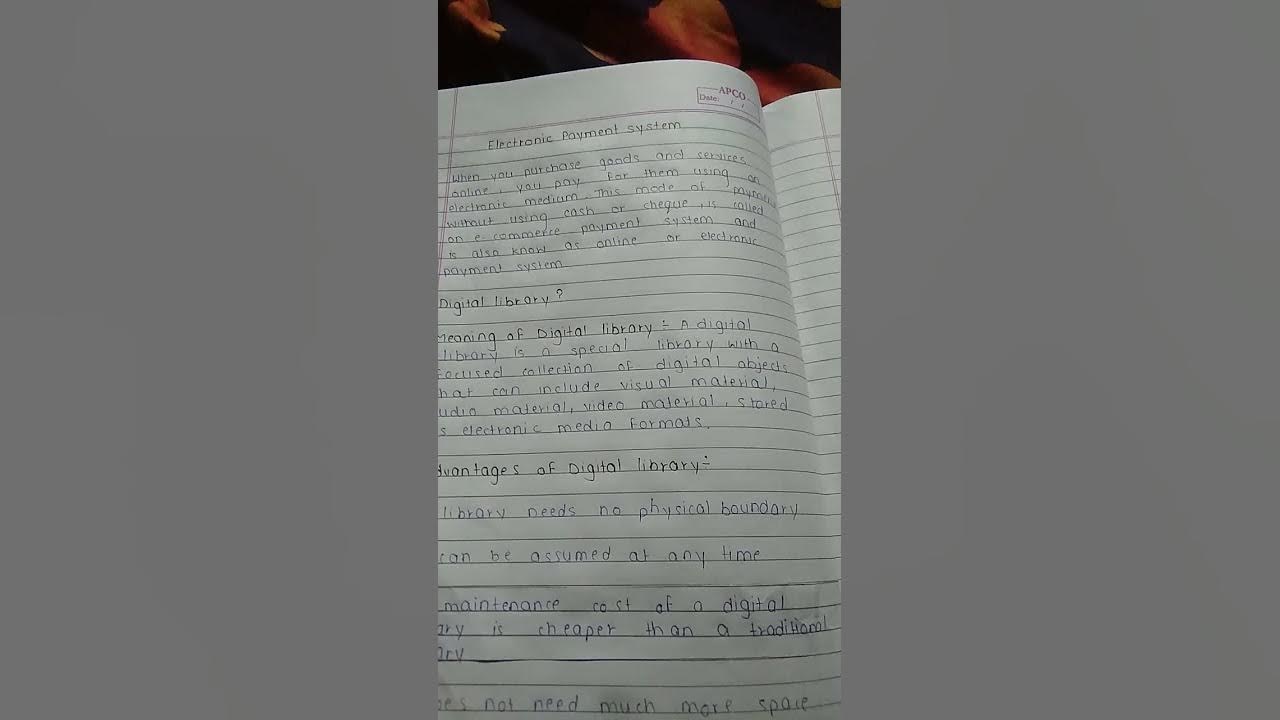 APCO
Date: / /
Electronic Payment system
When you purchase goods and services
online, you pay for them using an
electronic medium. This mode of payment
without using cash or cheque, is called
an e-commerce payment system and
is also know as online or electronic
payment system
Digital library?
Meaning of Digital library :- A digital
library is a special library with a
focused collection of digital objects
hat can include visual material,
udio material, video material, stored
s electronic media formats.
dvantages of Digital library :-
library needs no physical boundary
can be assumed at any time
maintenance cost of a digital
ary is cheaper than a traditional
ary
es not need much more space